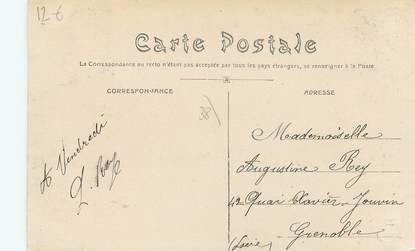 12 €
Carte Postale
La Correspondance au recto n'étant pas acceptée par tous les pays étrangers, se renseigner à la Poste
CORRESPONDANCE
ADRESSE
38
A Vendredi
Mademoiselle
Augustine Rey
42 Quai Xavier-Jouvin
Grenoble
(Isère)